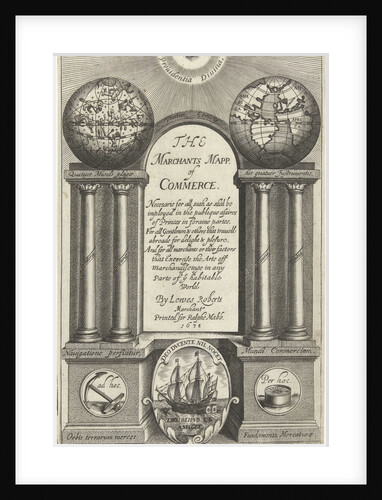 Providentia Divina.
THE
MARCHANTS MAPP
of
COMMERCE.
Necessarie for all such as shal be
imployed in the publique afaires
of Princes in foraine partes.
For all Gentlemen & others that travell
abroade for delight & plesure.
And for all marchants or their factors
that Exercise the Arte off
Marchandiseinge in any
Parts of y habitable
World.
By Lewes Roberts
Marchant
Printed for Ralphe Mabb
Quatuor Mundi plagæ
Navigatione perficitur
Mundi Commercium
ad hoc
Per hoc
DEO FAVENTE NIL NOCET
Orbis terrarum merces
Fundamenta Mercaturæ